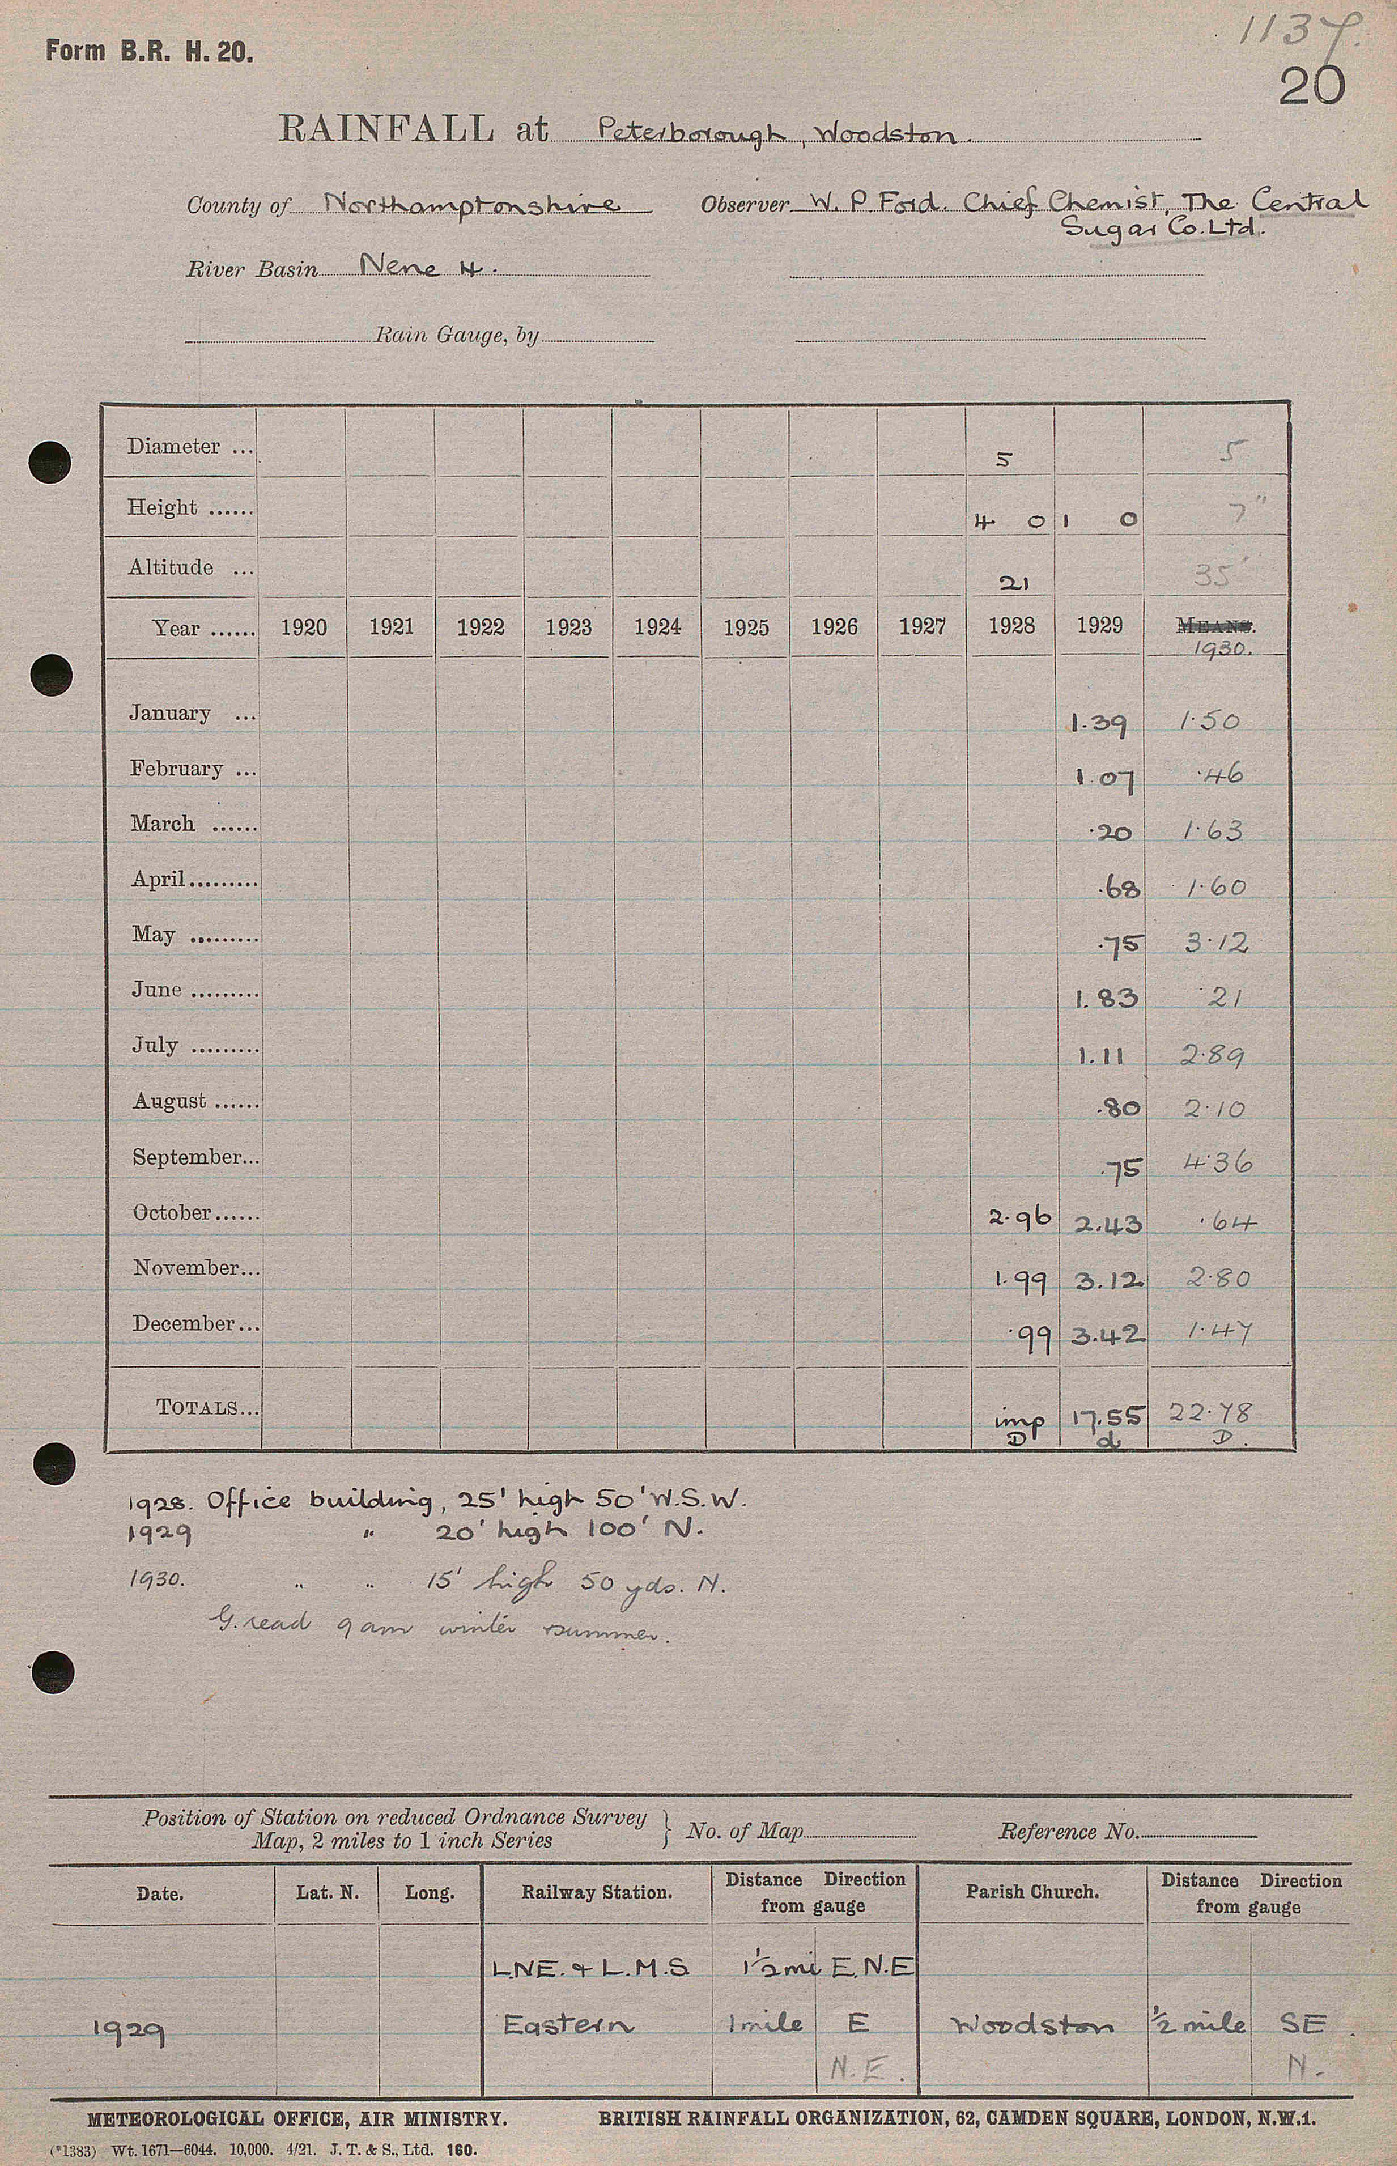 Form B.R. H. 20.
1137.
20
RAINFALL at Peterborough, Woodston.
County of Northamptonshire Observer W. P. Ford. Chief Chemist, The Central
Sugar Co. Ltd.
River Basin Nene 4.
Rain Gauge, by
Diameter ... 5 5
Height ...... 4 0 1 0 7"
Altitude ... 21 35'
Year ...... 1920 1921 1922 1923 1924 1925 1926 1927 1928 1929 MEANS.
1930.
January ... 1.39 1.50
February ... 1.07 .46
March ...... .20 1.63
April ......... .68 1.60
May ......... .75 3.12
June ......... 1.83 .21
July ......... 1.11 2.89
August ...... .80 2.10
September... .75 4.36
October...... 2.96 2.43 .64
November... 1.99 3.12 2.80
December... .99 3.42 1.47
TOTALS... imp 17.55 22.78
D d D.
1928. Office building, 25' high 50' W.S.W.
1929 " 20' high 100' N.
1930. " " 15' high 50 yds. N.
G. read 9 am winter summer.
Position of Station on reduced Ordnance Survey
Map, 2 miles to 1 inch Series } No. of Map Reference No.
Date. Lat. N. Long. Railway Station. Distance Direction from gauge Parish Church. Distance Direction from gauge
L.N.E. & L.M.S 1½ mi E.N.E
1929 Eastern 1 mile E Woodston ½ mile SE.
N.E. N.
METEOROLOGICAL OFFICE, AIR MINISTRY. BRITISH RAINFALL ORGANIZATION, 62, CAMDEN SQUARE, LONDON, N.W.1.
(*1383) Wt. 1671—6044. 10,000. 4/21. J. T. & S., Ltd. 160.